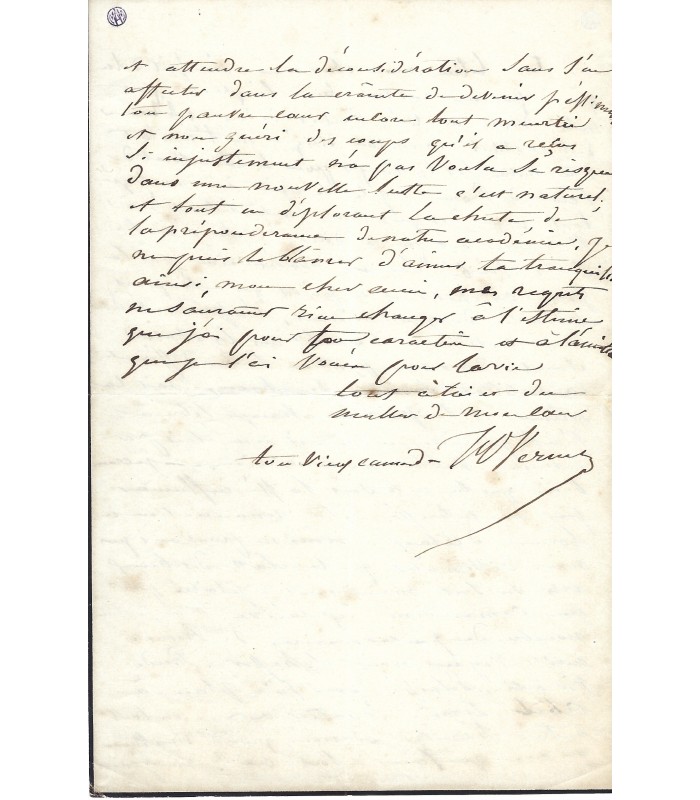 et attendre la déconsidération sans s'en
affecter dans la crainte de devenir
ton pauvre cœur encore tout meurtri
et non guéri des coups qu'il a reçus
si injustement n'a pas voulu se risquer
dans une nouvelle lutte c'est naturel,
et tout en déplorant la chute de
la prépondérance de notre académie, je
ne puis te blâmer d'aimer ta
ainsi, mon cher ami, mes regrets
ne sauraient rien changer à l'estime
que j'ai pour ton caractère et à l'amitié
que je t'ai vouée pour la vie
tout à toi et du
meilleur de mon cœur
ton vieux camarade HVernet